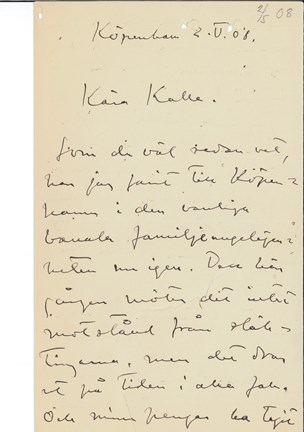 2/5 08
Köpenhavn 2.V.08.
Kära Kalle.
Som du väl redan vet,
har jag farit till Köpen=
hamn i den vanliga
banala familjeangelägen=
heten nu igen. Den här
gången möter det intet
motstånd från släk=
tingarna, men det dras
ut på tiden i alla fall.
Och mina pengar ha tagit